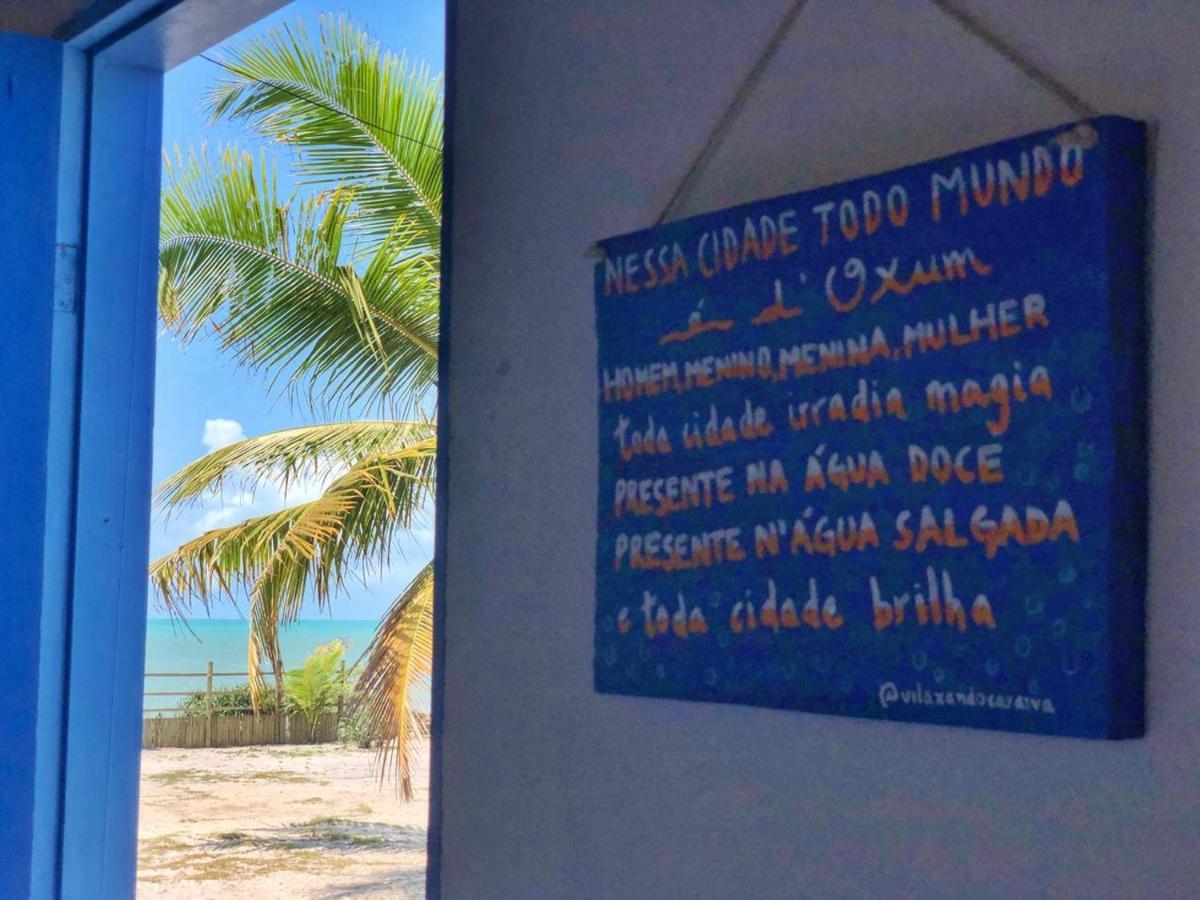 NESSA CIDADE TODO MUNDO
é d'Oxum
HOMEM, MENINO, MENINA, MULHER
toda cidade irradia magia
PRESENTE NA ÁGUA DOCE
PRESENTE N'ÁGUA SALGADA
e toda cidade brilha
@vilaxandocaraiva